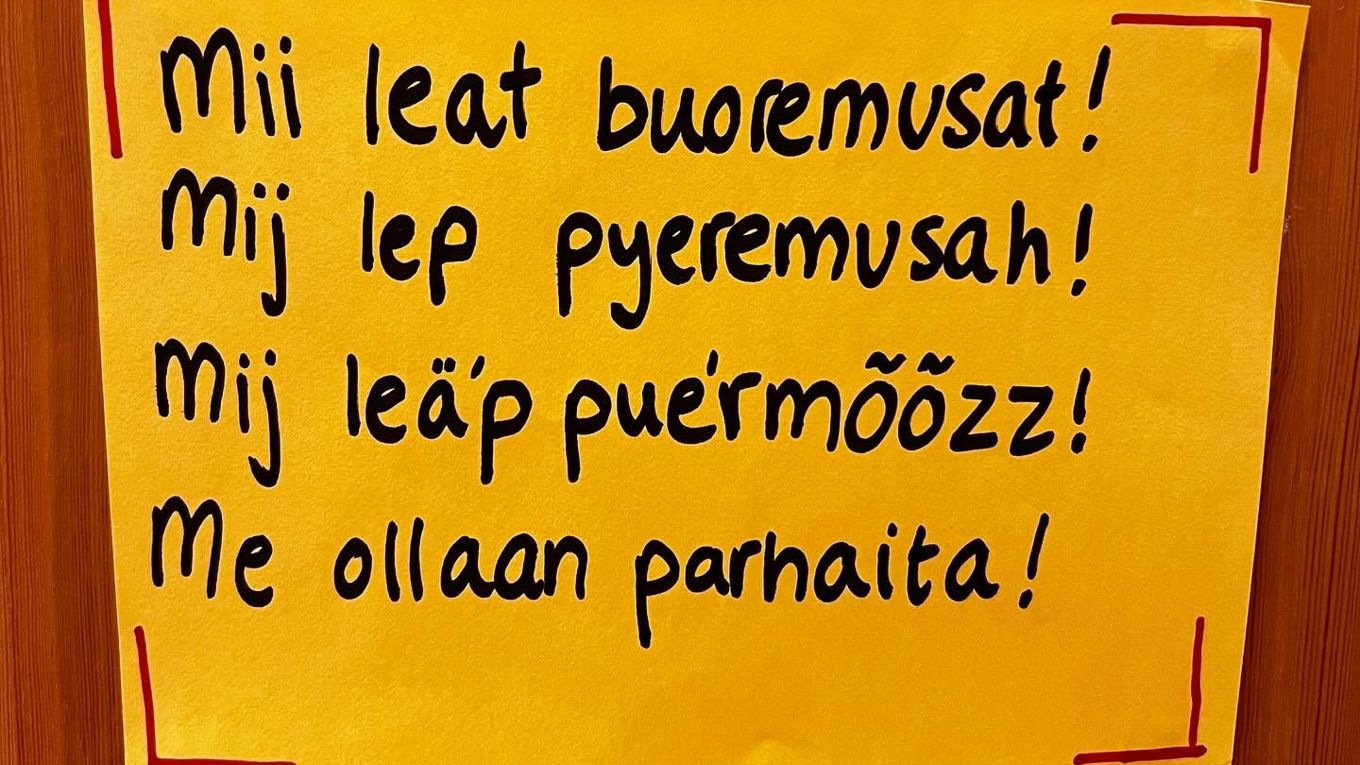 Mii leat buoremusat!
Mij lep pyeremusah!
Mij leäʹp pueʹrmõõzz!
Me ollaan parhaita!